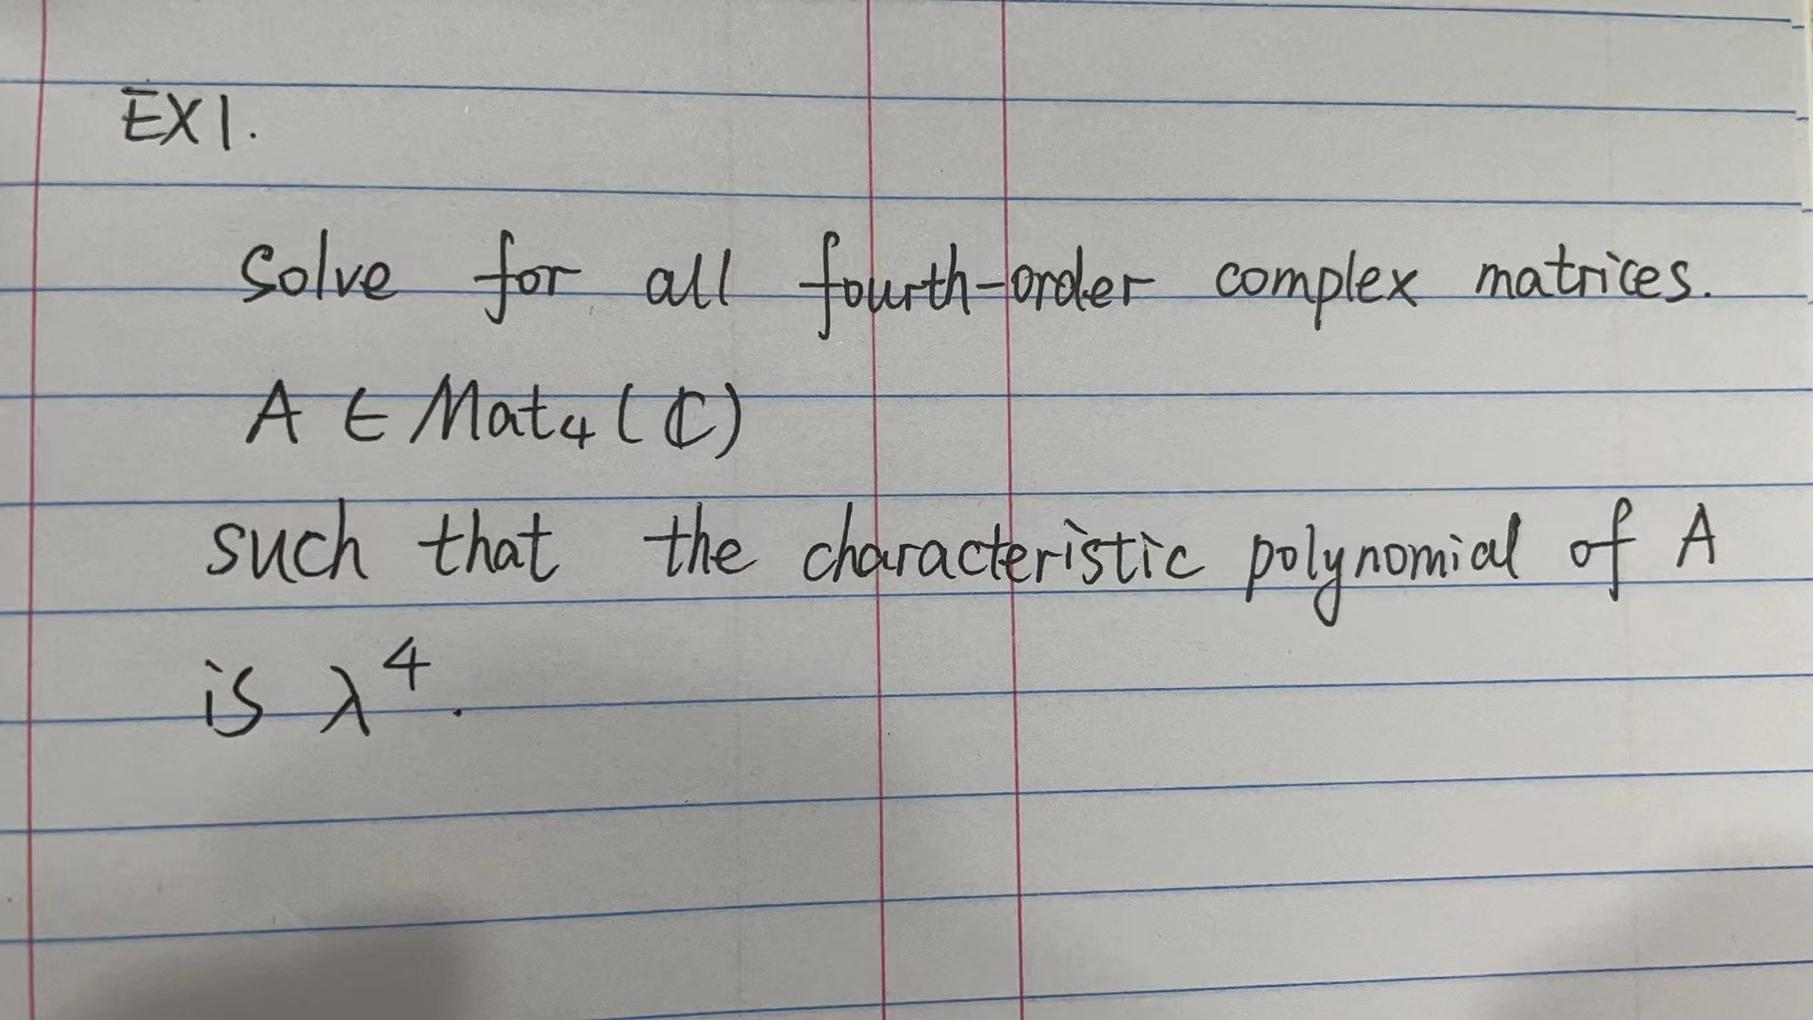 EX1.
Solve for all fourth-order complex matrices.
A ∈ Mat₄(ℂ)
such that the characteristic polynomial of A
is λ⁴.